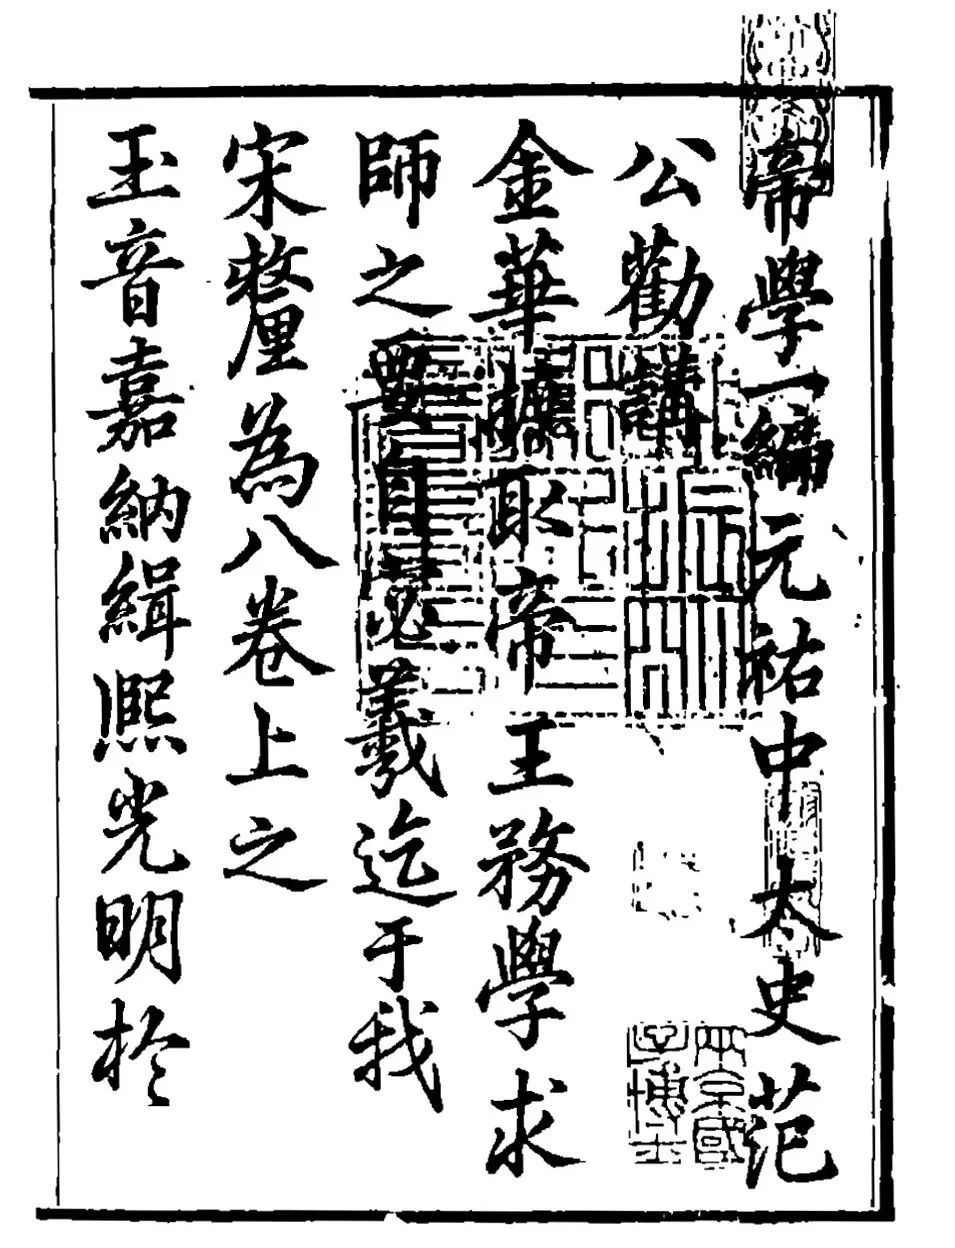 帝學一編元祐中太史范
公勸講
金華取帝王務學求
師之要自宓羲迄于我
宋釐為八卷上之
玉音嘉納緝熙光明於